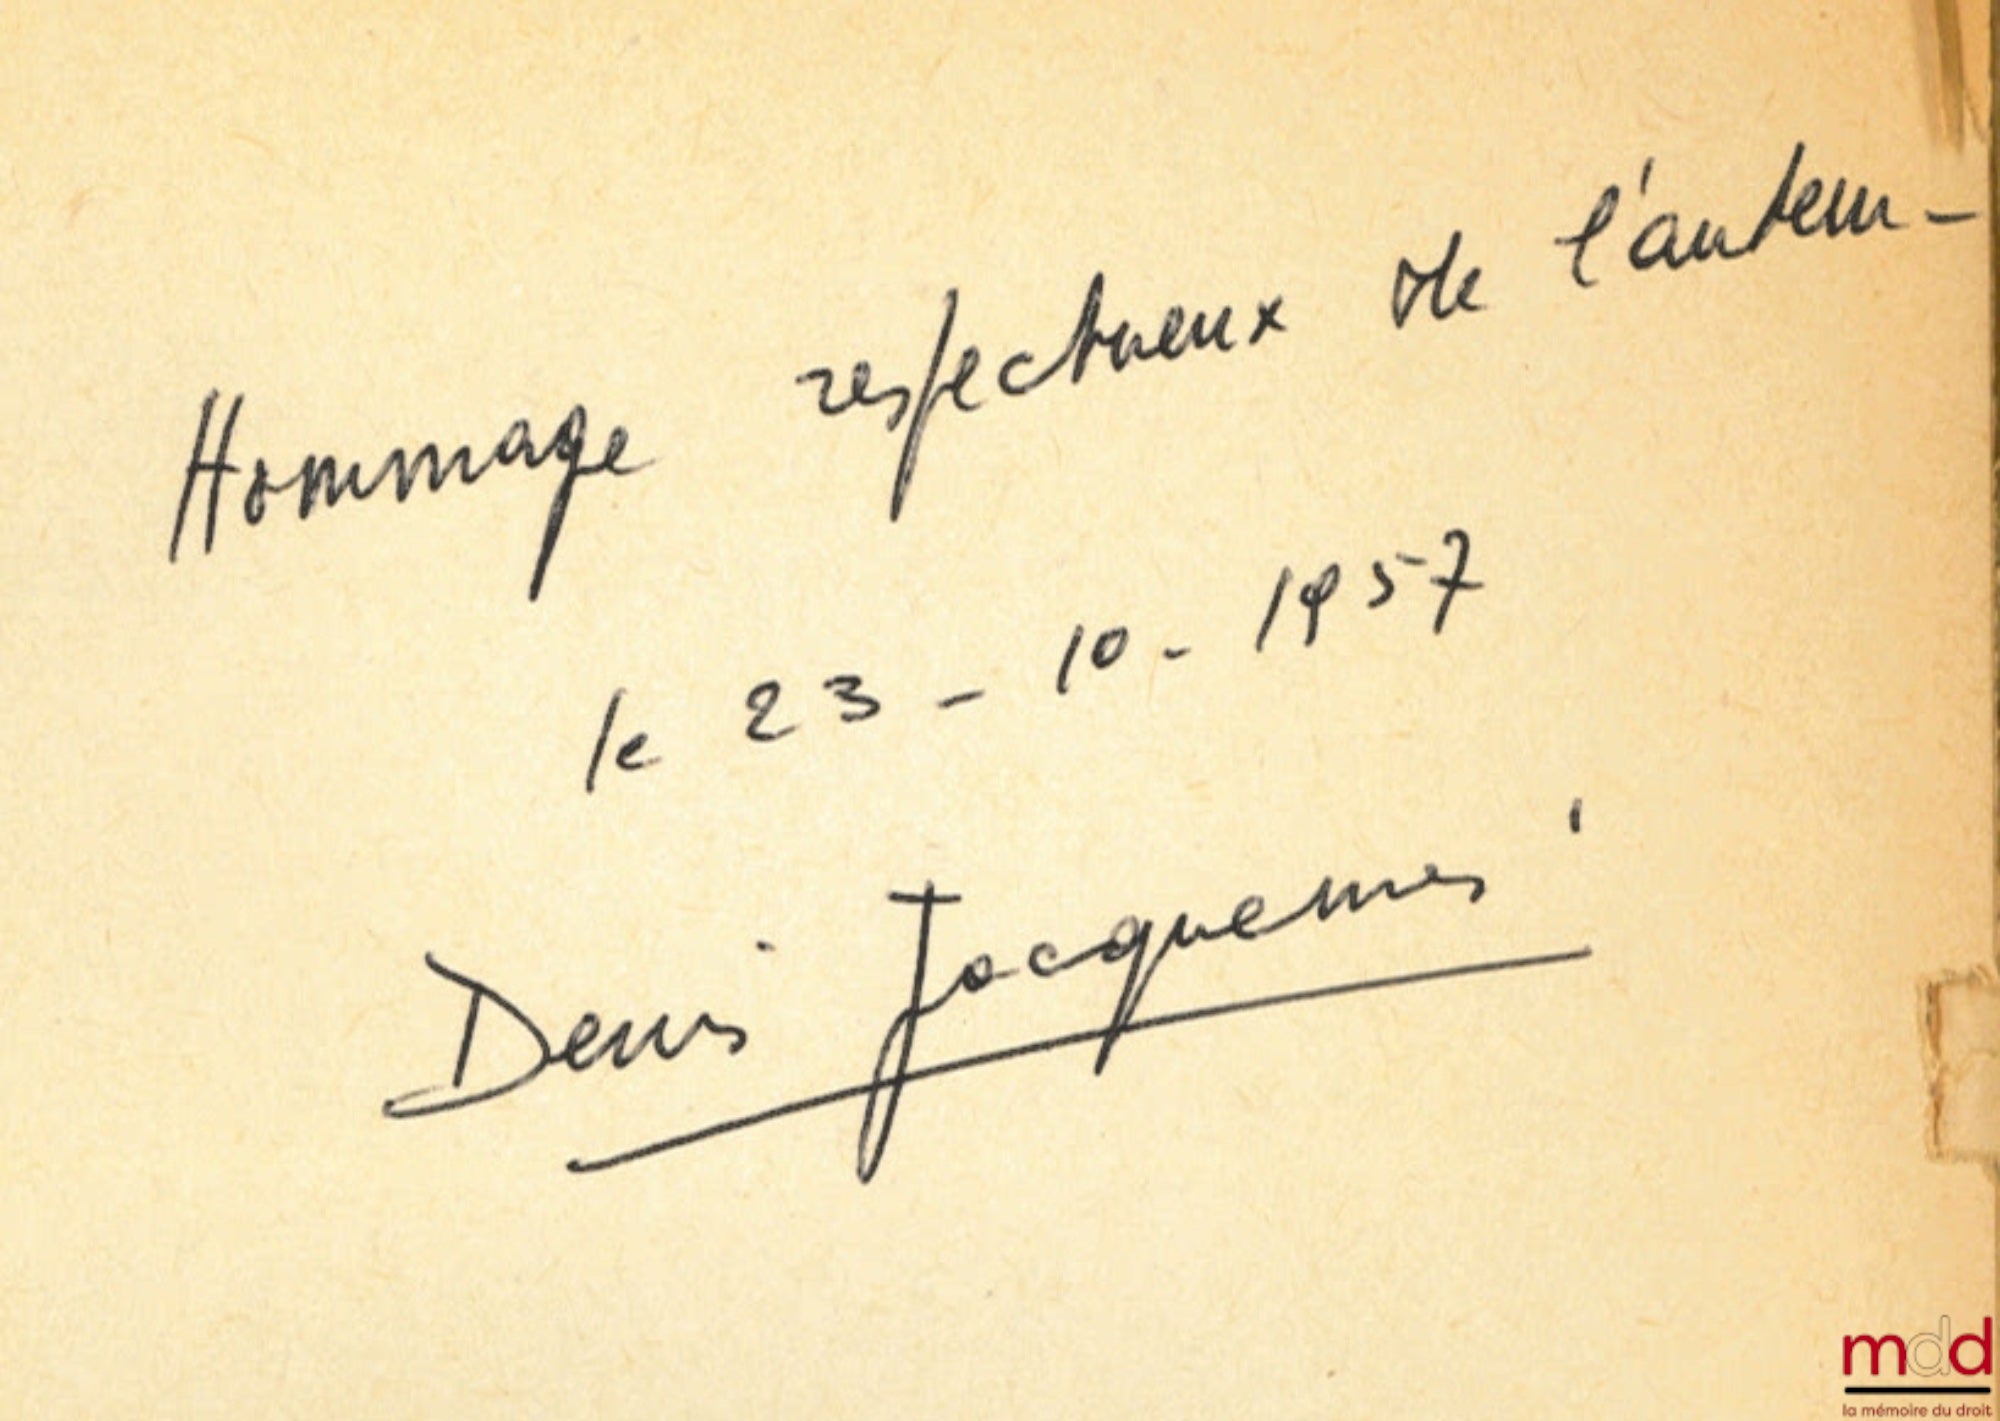 Hommage respectueux de l'auteur -
le 23 - 10 - 1957
Denis Jacquemin
mdd
la mémoire du droit